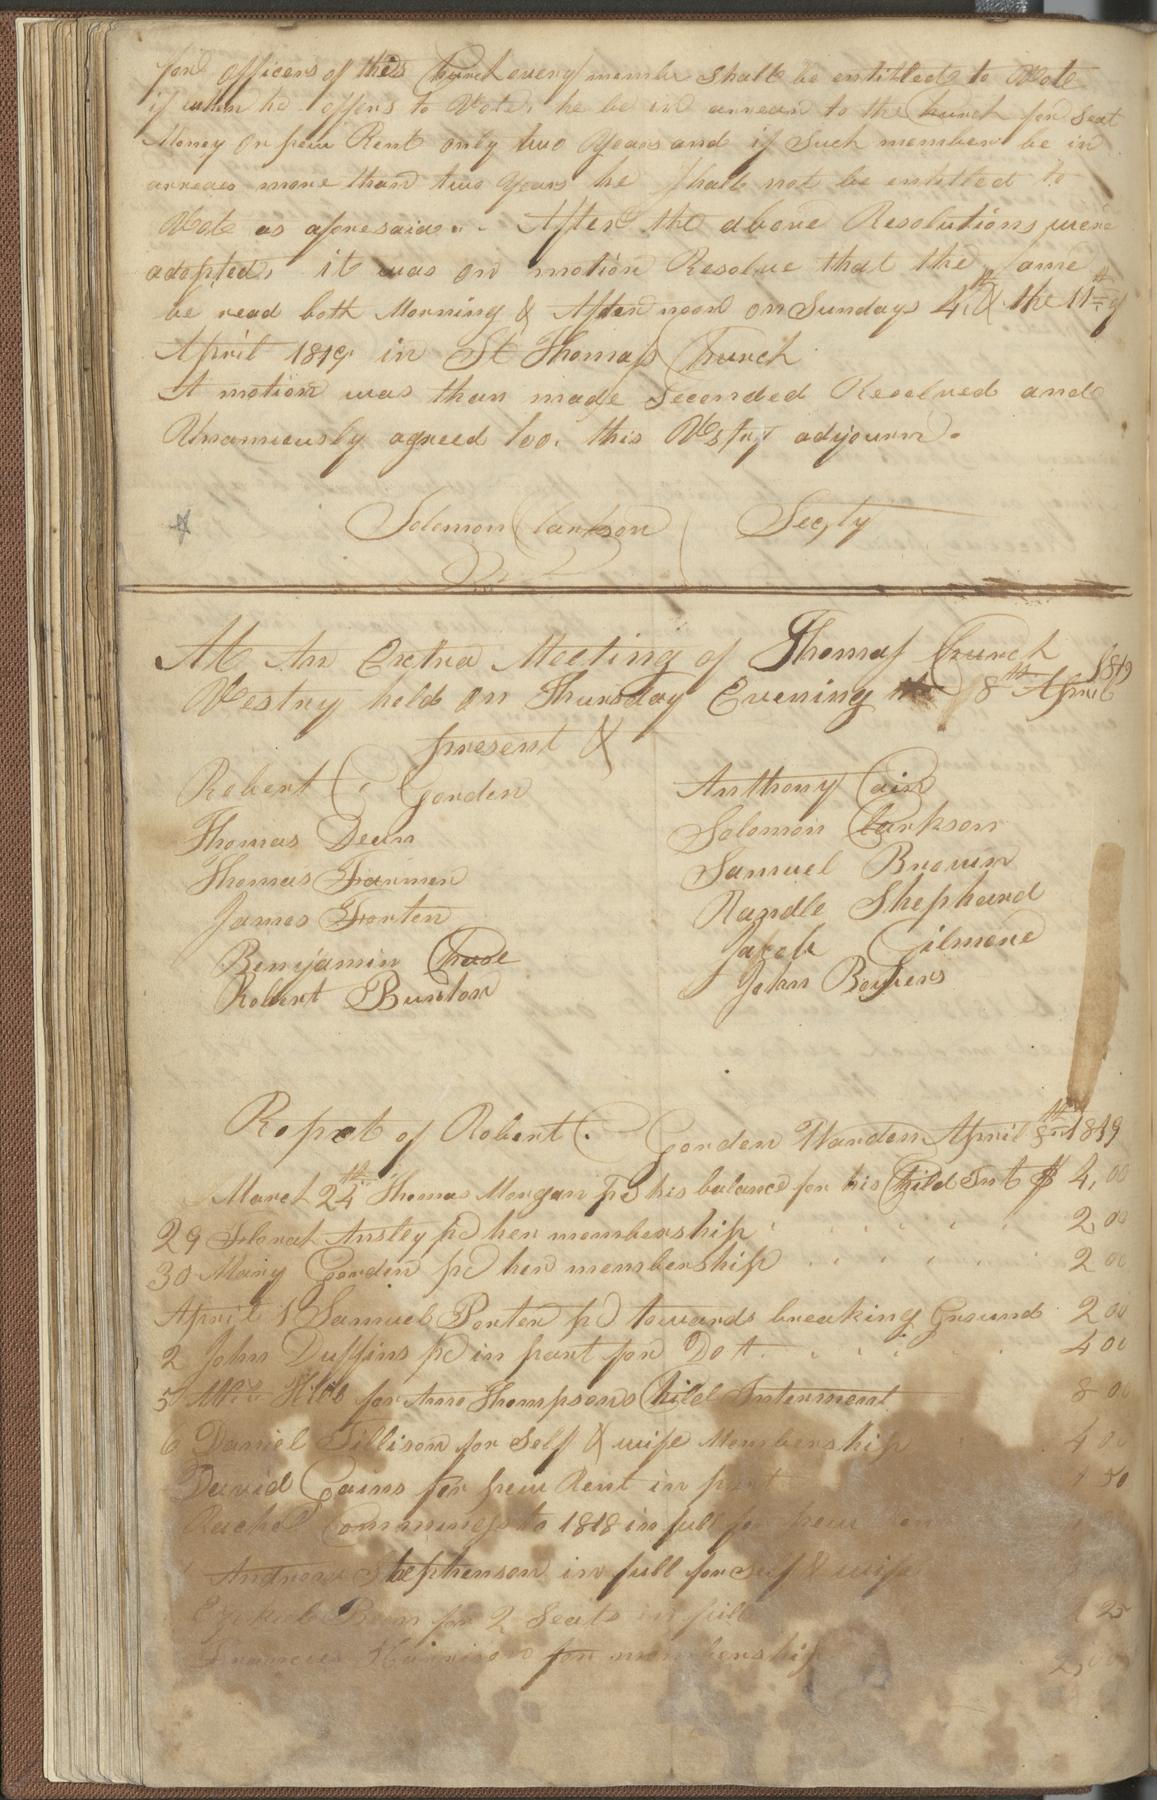 for officers of this Church every member shall be entitled to Vote
if when he offers to Vote, he be in arrears to the Church for Seat
Money or pew Rent only two Years and if Such member be in
arreaes more than two Years he Shall not be entitled to
Vote as aforesaid. After the above Resolutions were
adopted, it was on motion Resolve that the Same
be read both Morning & Afternoon on Sundays 4th & the 11th of
April 1819 in St Thomas Church
A motion was than made Seconded Resolved and
Unamiously agreed too, this Vestry adjourn.
Solomon Clarkson Secty
At An Extra Meeting of Thomas Church
Vestry held on Thursday Evening 8th April 1819
present &
Robert C. Gorden
Thomas Deen
Thomas Farmer
James Forten
Benjamin Chase
Robert Burton
Anthony Cain
Solomon Clarkson
Samuel Brown
Randle Shephard
Jakob Gilmore
John Bowers
Report of Robert C. Gorden Warden April 8th 1819
March 24th Thomas Morgan pd his balance for his Child Int $ 4,00
29 Ansley pd her membership 2,00
30 Mary Gorden pd her membership 2 00
April 1 Samuel Porter pd towards breaking Ground 2 00
2 John Duffins pd in part for Do 4 00
5 for Thompsons Child Interment 8 00
6 Daniel Tillison for Self & wife Membership 4 00
David Gains for pew Rent in part 1 50
Rachel Commings to 1818 in full for pew
Andrew Stephenson in full for self & wife
for 2 Seats in full 25
Harrison for membership 2,00